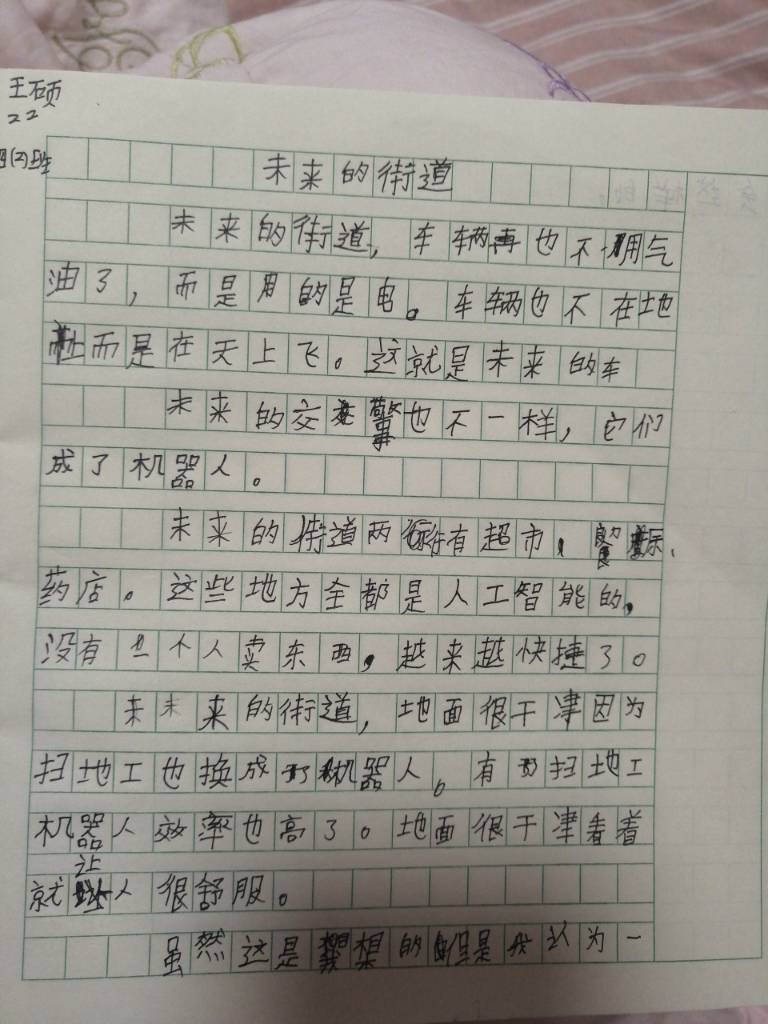 王硕
22
(2)班
未来的街道
未来的街道，车辆再也不用气
油了，而是用的是电。车辆也不在地
而是在天上飞。这就是未来的车
未来的交警也不一样，它们
成了机器人。
未来的街道两有超市，
药店。这些地方全都是人工智能的，
没有一个人卖东西，越来越快捷了。
未来的街道，地面很干津因为
扫地工也换成了机器人。有了扫地工
机器人效率也高了。地面很干津看着
就让人很舒服。
虽然这是想的但是我认为一